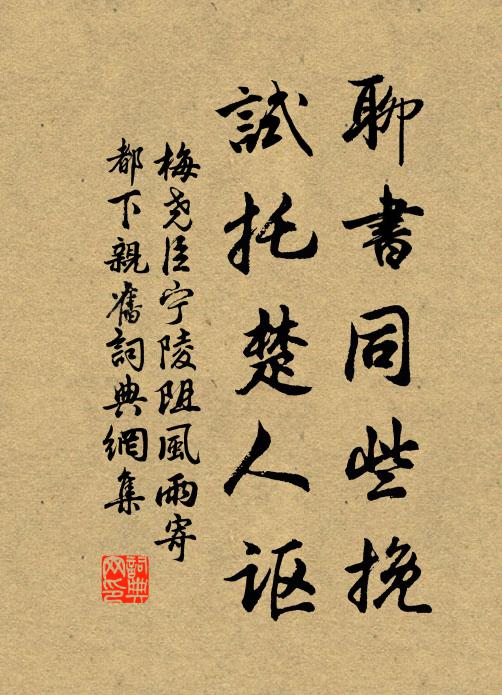 聊書同些挽
試托楚人讴
梅尧臣宁陵阻風雨寄
都下親舊詞典網集
詞典网印